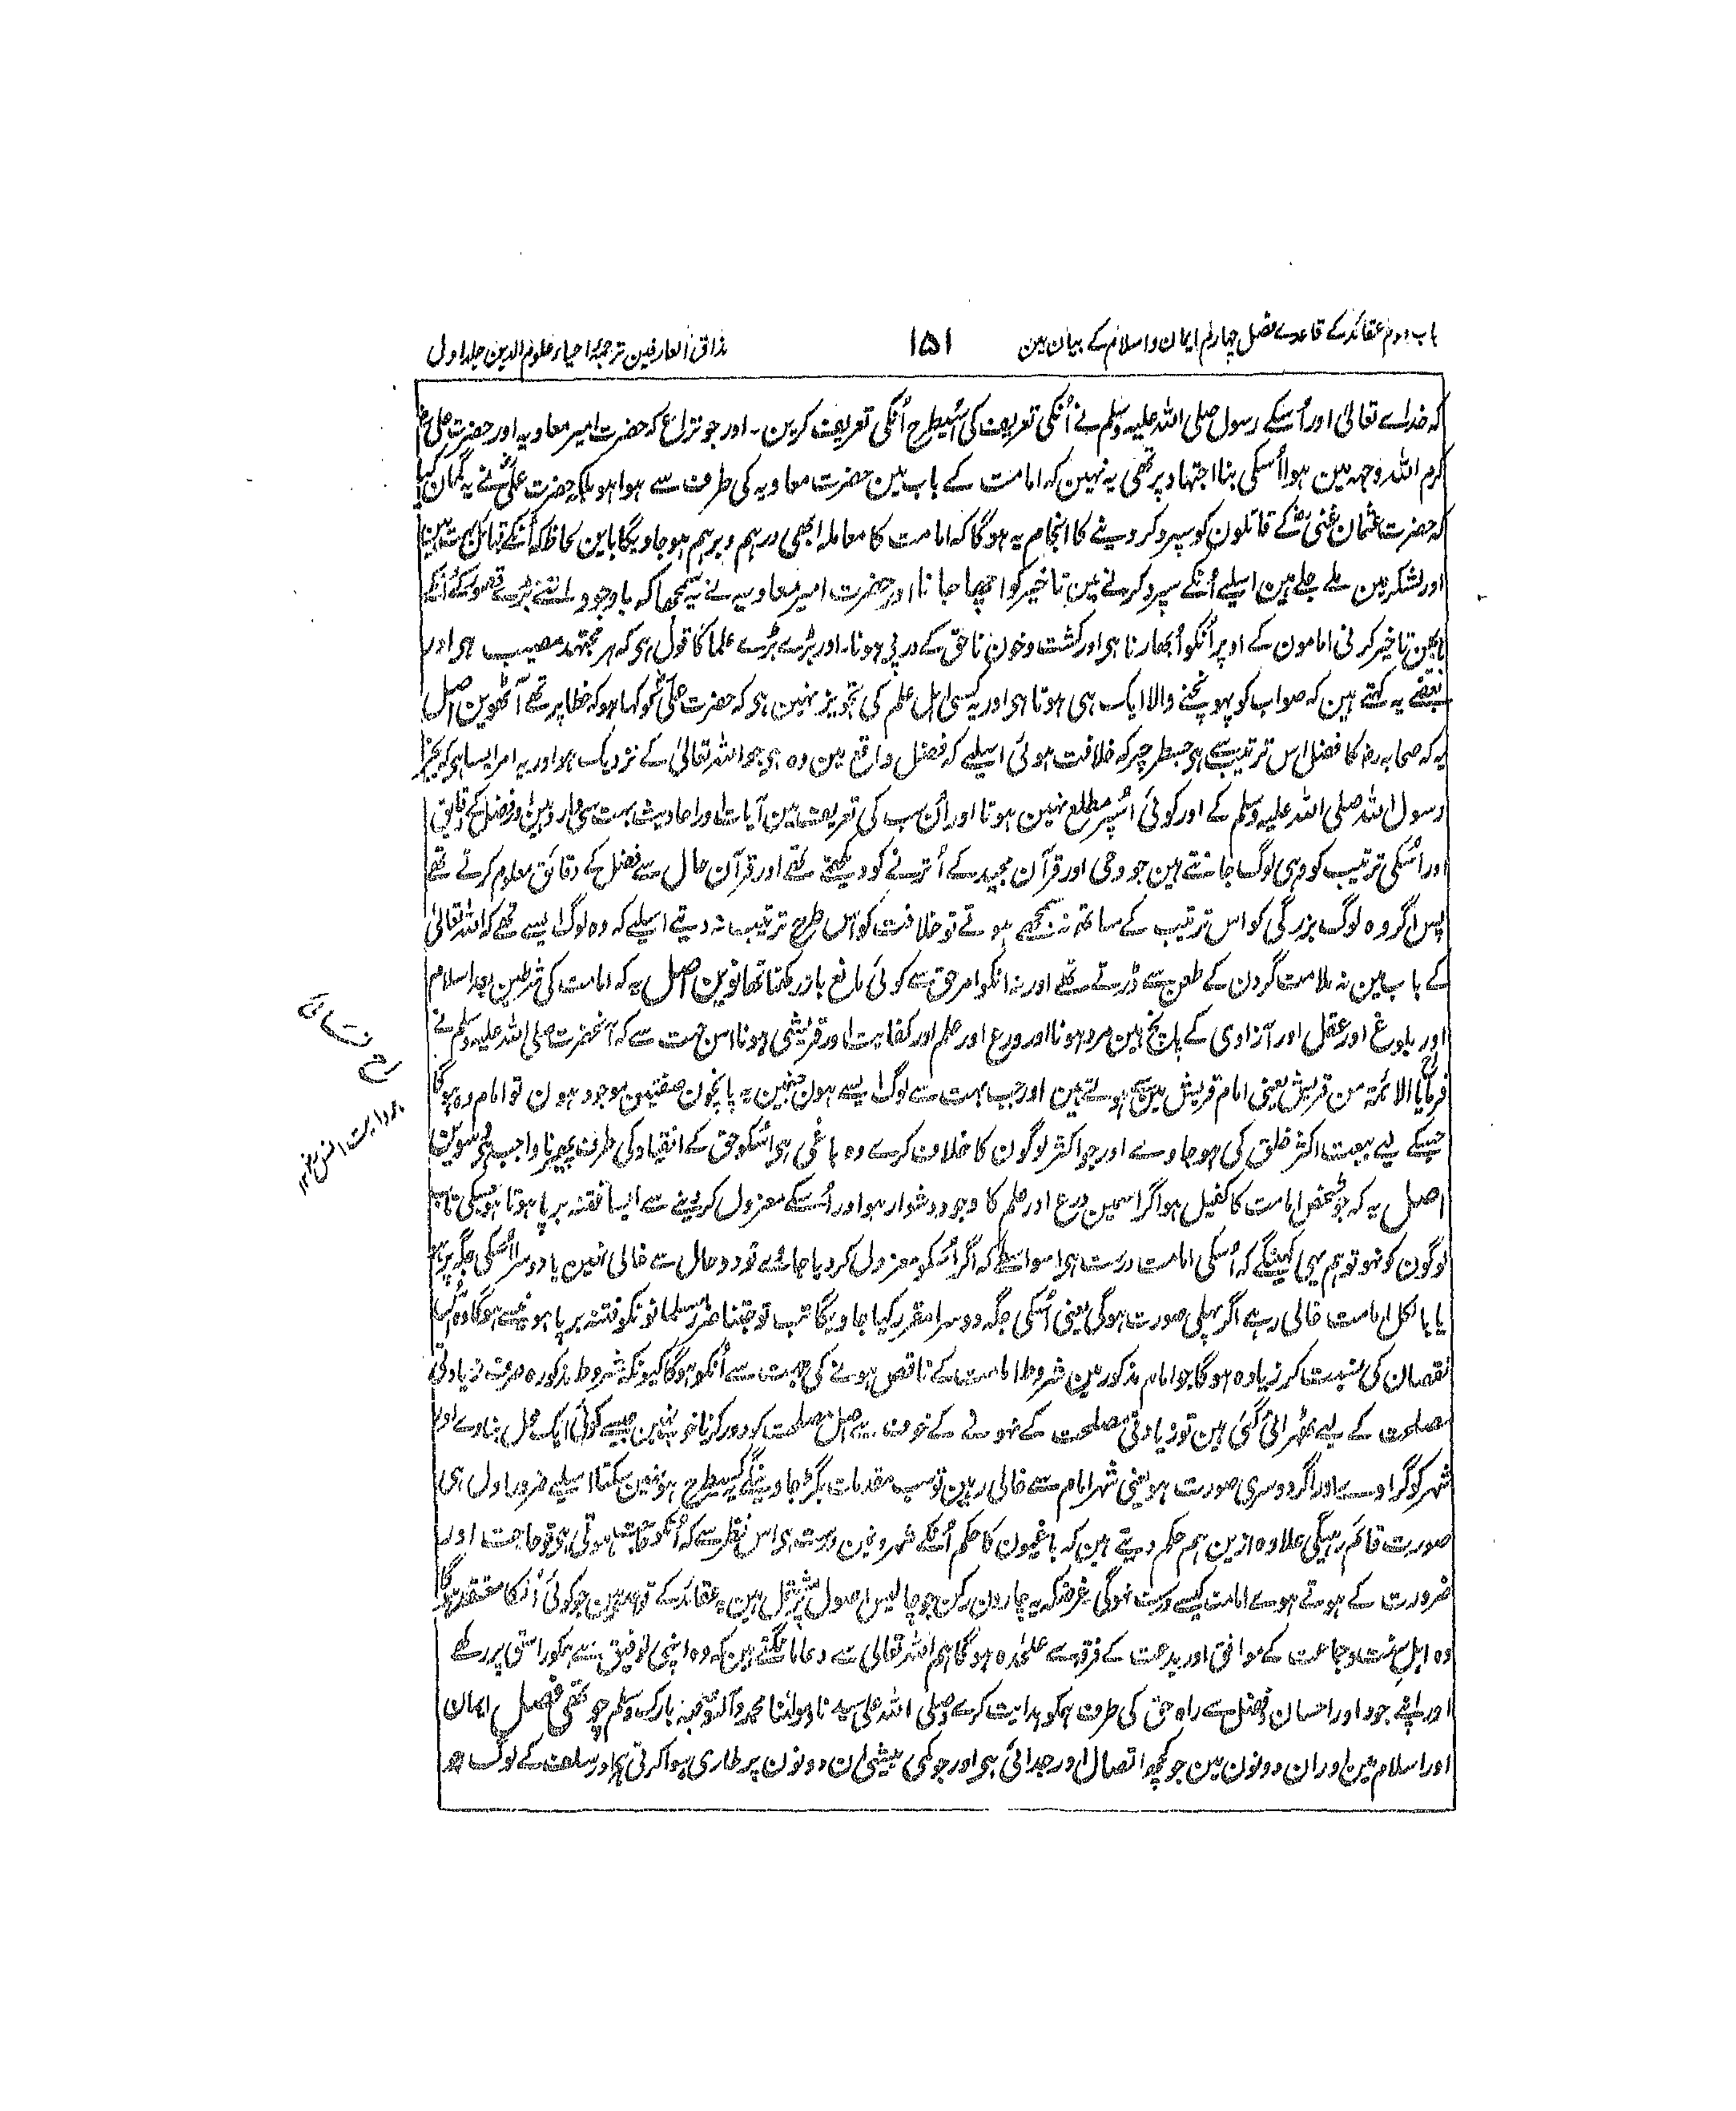 باب دوم عقائد کے قاعدے فصل چہارم ایمان و اسلام کے بیان مین
۱۵۱
مذاق العارفین ترجمۂ احیاء علوم الدین جلد اول
کہ خداے تعالیٰ اور اُسکے رسول صلی اللہ علیہ وسلم نے اُنکی تعریف کی اُسیطرح اُنکی تعریف کرین۔ اور جو نزاع کہ حضرت امیر معاویہ اور حضرت علی
کرم اللہ وجہہ مین ہوا اُسکی بنا اجتہاد پر تھی یہ نہین کہ امامت کے باب مین حضرت معاویہ کی طرف سے ہوا ہو بلکہ حضرت علیؓ نے یہ گمان کیا
کہ حضرت عثمان غنیؓ کے قاتلون کو سپرد کر دینے کا انجام یہ ہوگا کہ امامت کا معاملہ ابھی درہم و برہم ہو جاویگا باین لحاظ کہ اُنکے قبائل بہت ہین
اور لشکر مین ملے جلے ہین اسلیے اُنکے سپرد کرنے مین تاخیر کو اچھا جانا اور حضرت امیر معاویہ نے یہ سمجھا کہ باوجود اتنے بڑے قصور کے اُنکے
باب مین تاخیر کرنی امامون کے اوپر اُنکو اُبھارنا ہی اور کشت و خون ناحق کے درپی ہونا۔ اور بڑے بڑے علما کا قول ہی کہ ہر مجتہد مصیب ہی اور
بعضے یہ کہتے ہین کہ صواب کو پہونچنے والا ایک ہی ہوتا ہی اور یہ کسی اہل علم کی تجویز نہین ہی کہ حضرت علیؓ کو کہا ہو کہ خطا پر تھے آٹھوین اصل
یہ کہ صحابہ رضہ کا فضل اس ترتیب سے ہی جسطرح پر کہ خلافت ہوئی اسلیے کہ فضل واقع مین وہ ہی جو اللہ تعالیٰ کے نزدیک ہو اور یہ امر ایسا ہی کہ بجز
رسول اللہ صلی اللہ علیہ وسلم کے اور کوئی اُسپر مطلع نہین ہوتا اور اُن سب کی تعریف مین آیات اور احادیث بہت سی وارد ہین اور فضل کے دقایق
اور اُسکی ترتیب کو وہی لوگ جانتے ہین جو وحی اور قرآن مجید کے اُترنے کو دیکھتے تھے اور قرآن حال سے فضل کے دقائق معلوم کرتے تھے
پس اگر وہ لوگ بزرگی کو اس ترتیب کے ساتھ نہ سمجھے ہوتے تو خلافت کو اس طرح ترتیب نہ دیتے اسلیے کہ وہ لوگ ایسے تھے کہ اللہ تعالیٰ
کے باب مین نہ ملامت گردن کے طعن سے ڈرتے تھے اور نہ انکو امر حق سے کوئی مانع باز رکھتا تھا نوین اصل یہ کہ امامت کی شرطین بعد اسلام
اور بلوغ اور عقل اور آزادی کے پانچ ہین مرد ہونا اور ورع اور علم اور کفایت اور قریشی ہونا اس جہت سے کہ آنحضرت صلی اللہ علیہ وسلم نے
فرمایا الائمۃ من قریش یعنی امام قریش مین سے ہوتے ہین اور جب بہت سے لوگ ایسے ہون جنمین یہ پانچون صفتین موجود ہون تو امام وہ ہوگا
جسکے لیے بیعت اکثر خلق کی ہو جاوے اور جو اکثر لوگون کا خلاف کرے وہ باغی ہی اُسکو حق کے انقیاد کی طرف پھیرنا واجب ہی دسوین
اصل یہ کہ جو شخص امامت کا کفیل ہو اگر اسمین ورع اور علم کا وجود دشوار ہو اور اُسکے معزول کردینے سے ایسا فتنہ برپا ہوتا ہو جسکی تاب
لوگون کو نہو تو ہم یہی کہینگے کہ اُسکی امامت درست ہی اسواسطے کہ اگر اُسکو معزول کردیا جائے تو دو حال سے خالی نہین یا دوسرا اُسکی جگہ پر ہو
یا بالکل امامت خالی رہے اگر پہلی صورت ہوگی یعنی اُسکی جگہ دوسرا مقرر کیا جاویگا تب تو جتنا ضرر مسلمانونکو فتنہ برپا ہونیسے ہوگا وہ اُس
نقصان کی نسبت کر زیادہ ہوگا جو امام مذکور مین شروط امامت کے ناقص ہونے کی جہت سے اُنکو ہوگا کیونکہ شروط مذکورہ صرف زیادتی
مصلحت کے لیے ٹھہرائی گئی ہین تو زیادتی مصلحت کے نہونے کے خوف سے اصل مصلحت کو دور کرنا خوب نہین جیسے کوئی ایک محل بناوے اور
شہر کو گراوے اور اگر دوسری صورت ہو یعنی شہر امام سے خالی رہین تو سب مقدمات بگڑ جاوینگے یہ کسیطرح ہو نہین سکتا اسلیے ضرور اول ہی
صورت قائم رہیگی علاوہ ازین ہم حکم دیتے ہین کہ باغیون کا حکم اُنکے شہرونمین درست ہی اس نظر سے کہ اُنکو حاجت ہوتی ہی تو حاجت اور
ضرورت کے ہوتے ہوے امامت کیسے درست نہوگی غرضکہ یہ چارون رکن جو چالیس اصول پر مشتمل ہین عقائد کے قواعد ہین جو کوئی اُنکا معتقد ہوگا
وہ اہل سنت و جماعت کے موافق اور بدعت کے فرقہ سے علٰحدہ ہوگا ہم اللہ تعالی سے دعا مانگتے ہین کہ وہ اپنی توفیق سے ہمکو راستی پر رکھے
اور اپنے جود اور احسان و فضل سے راہ حق کی طرف ہمکو ہدایت کرے وصلی اللہ علی سیدنا و مولٰنا محمد وآلہ وصحبہ بارک وسلم چوتھی فصل ایمان
اور اسلام مین اور ان دونون مین جو کچھ اتصال اور جدائی ہی اور جو کمی بیشی ان دونون پر طاری ہوا کرتی ہی اور سلف کے لوگ جو
بروایت انس رضہ ۱۲